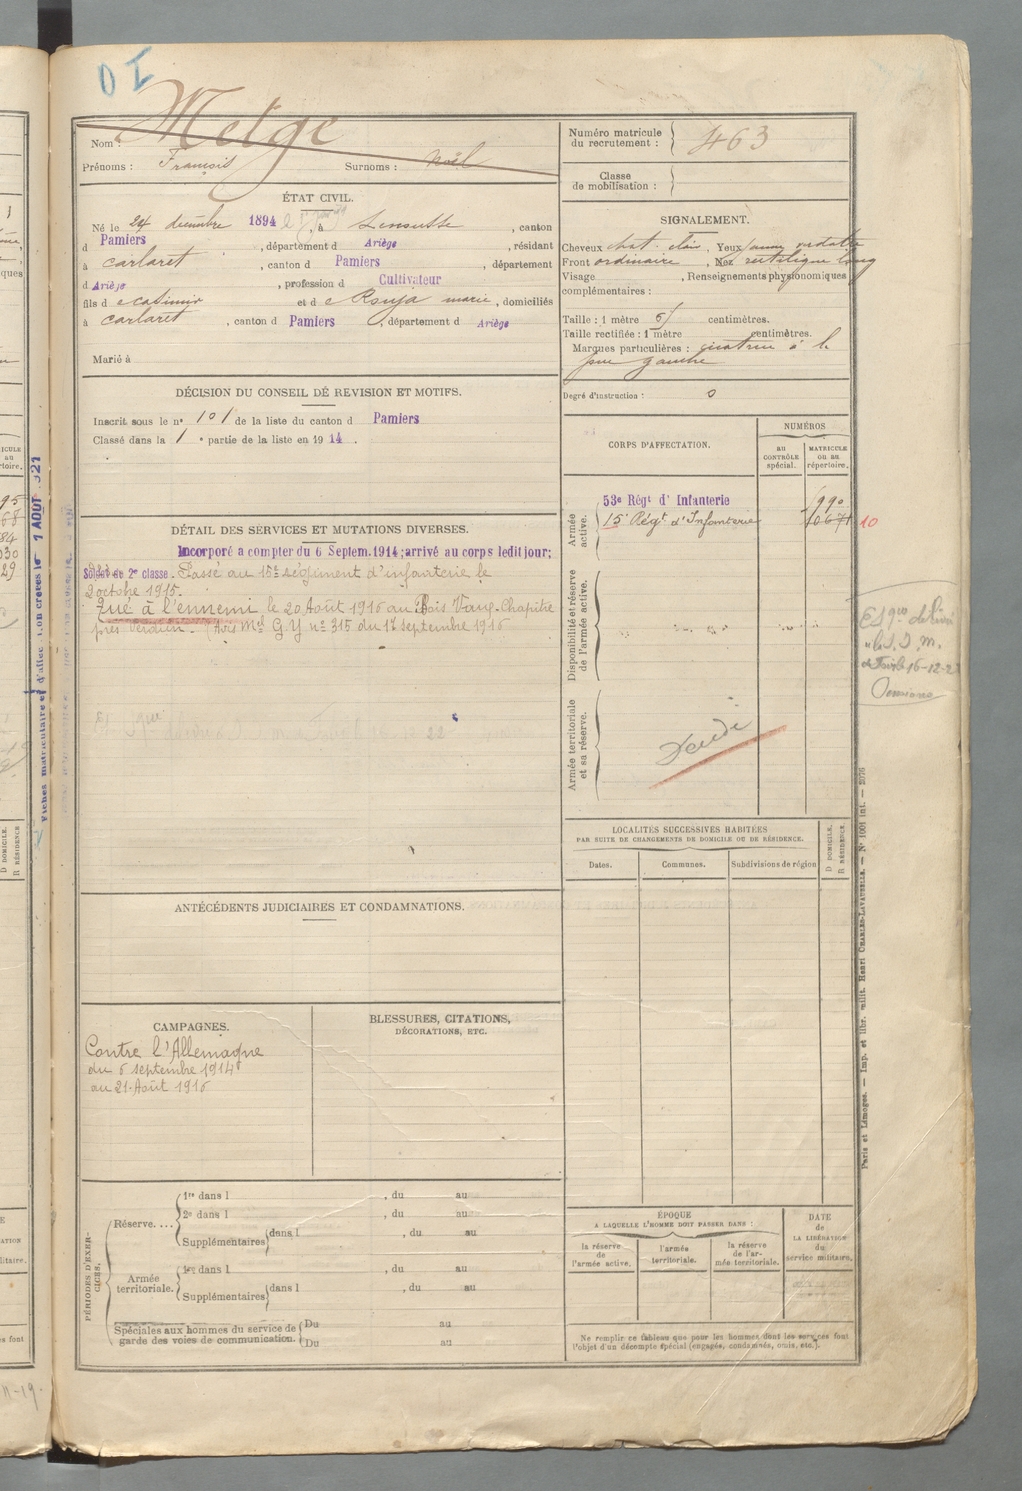 D I
Nom : Melge
Prénoms : François Surnoms : Noël
Numéro matricule du recrutement : 463
Classe de mobilisation :
ÉTAT CIVIL.
Né le 24 décembre 1894, à , canton
d Pamiers, département d Ariège, résidant
à Carlaret, canton d Pamiers, département
d Ariège, profession d Cultivateur
fils d e Casimir et d e Rouja marie, domiciliés
à Carlaret, canton d Pamiers, département d Ariège
Marié à
SIGNALEMENT.
Cheveux chat. clair, Yeux
Front ordinaire, Nez rectiligne long
Visage , Renseignements physionomiques
complémentaires :
Taille : 1 mètre centimètres.
Taille rectifiée : 1 mètre centimètres.
Marques particulières : cicatrice à la
joue gauche
Degré d'instruction : 0
DÉCISION DU CONSEIL DE REVISION ET MOTIFS.
Inscrit sous le no 101 de la liste du canton d Pamiers
Classé dans la 1e partie de la liste en 1914.
CORPS D'AFFECTATION.
NUMÉROS
AU CONTRÔLE spécial.
MATRICULE OU AU répertoire.
Armée active.
53e Régt d' Infanterie
15e Régt d'Infanterie 10671 10
Disponibilité et réserve de l'armée active.
Armée territoriale et sa réserve.
DÉTAIL DES SERVICES ET MUTATIONS DIVERSES.
Incorporé a compter du 6 Septem. 1914; arrivé au corps ledit jour;
Soldat de 2e classe. Passé au 15e régiment d'infanterie le
2 octobre 1915.
Tué à l'ennemi le 20 Août 1916 au Bois Vaux-Chapitre
près Verdun. (Avis Mel G.Y no 315 du 17 septembre 1916
16-12-2
Pensions
LOCALITÉS SUCCESSIVES HABITÉES
PAR SUITE DE CHANGEMENTS DE DOMICILE OU DE RÉSIDENCE.
Dates. Communes. Subdivisions de région
D DOMICILE.
R RÉSIDENCE.
ANTÉCÉDENTS JUDICIAIRES ET CONDAMNATIONS.
CAMPAGNES.
Contre l'Allemagne
du 6 septembre 1914
au 21 Août 1916
BLESSURES, CITATIONS,
DÉCORATIONS, ETC.
PÉRIODES D'EXERCICES.
Réserve....
1re dans l , du au
2e dans l , du au
Supplémentaires dans l , du au
Armée territoriale.
1re dans l , du au
Supplémentaires dans l , du au
Spéciales aux hommes du service de garde des voies de communication.
Du au
Du au
ÉPOQUE
A LAQUELLE L'HOMME DOIT PASSER DANS :
la réserve de l'armée active.
l'armée territoriale.
la réserve de l'armée territoriale.
DATE de LA LIBÉRATION du service militaire.
Ne remplir ce tableau que pour les hommes dont les services font
l'objet d'un décompte spécial (engagés, condamnés, omis, etc.).
Paris et Limoges. — Imp. et libr. milit. Henri CHARLES-LAVAUZELLE. — No 1001 int. — 1076